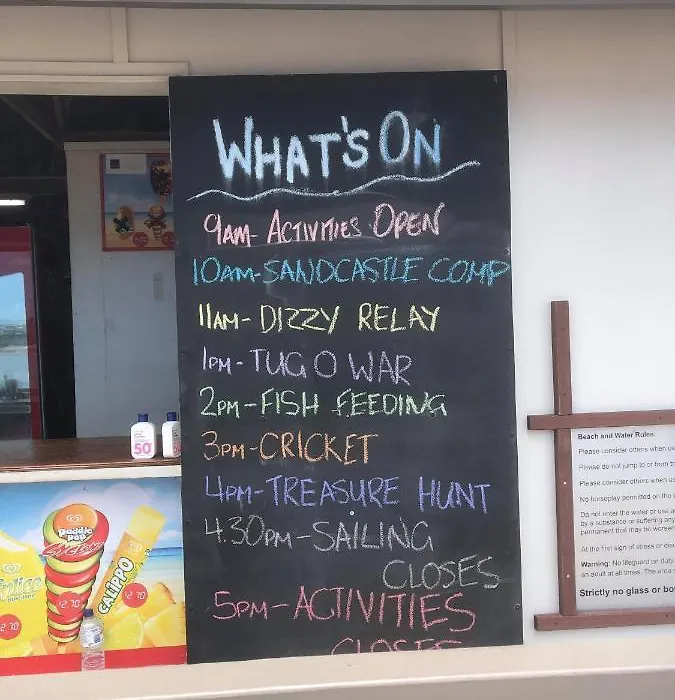 WHAT'S ON
9AM- ACTIVITIES OPEN
10AM-SANDCASTLE COMP
11AM- DIZZY RELAY
1PM- TUG O WAR
2PM-FISH FEEDING
3PM-CRICKET
4PM-TREASURE HUNT
4.30PM-SAILING
CLOSES
5PM-ACTIVITIES
CLOSES
50
Paddle
Pop
CALIPPO
Beach and Water Rules
Please consider others when
Please do not jump to or from
Please consider others when
No horseplay permitted on the
Do not enter the water or use
by a substance or suffering any
permanent that may be
At the first sign of stress or
Warning: No lifeguard on duty
an adult at all times. The area
Strictly no glass or